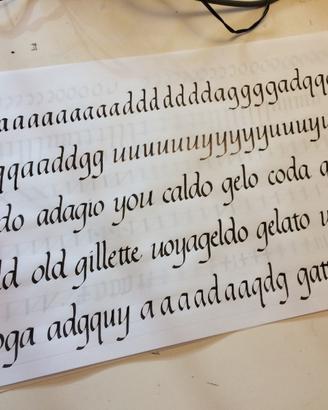 aaaaaaaaaadddddddaggggadqqg
qqaaddgg uuuuuuyyyyyyuuuyu
do adagio you caldo gelo coda a
ld old gillette uoyageldo gelato u
oga adgquy aaaadaaqdg gatt